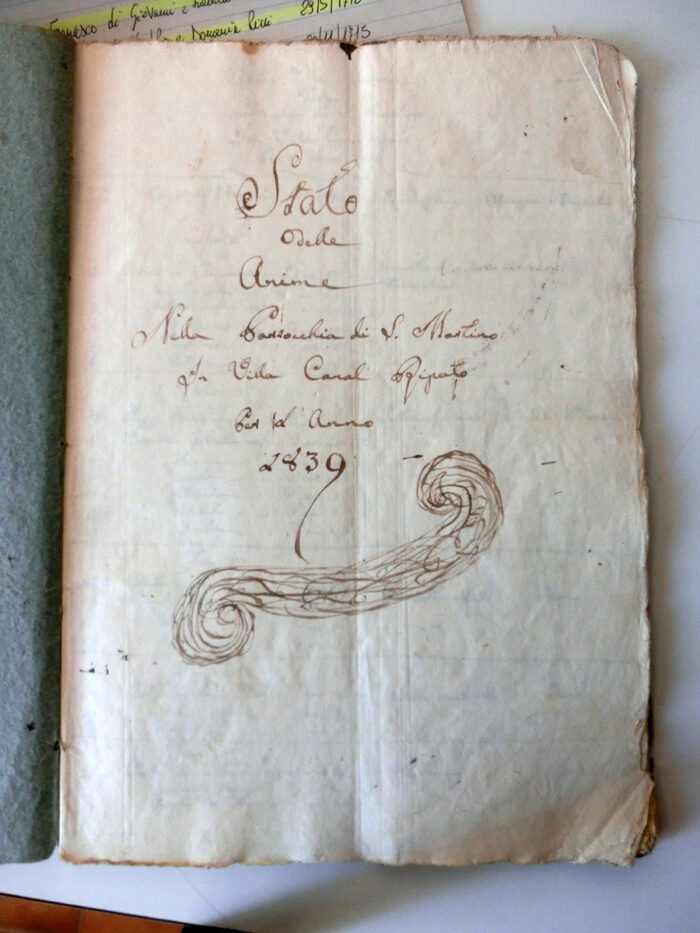 di Giovanni e
29/5/1710
Domenica
Stato
delle
Anime
Nella Parrocchia di S. Martino
In Villa Canal Ripato
Per l' Anno
1839